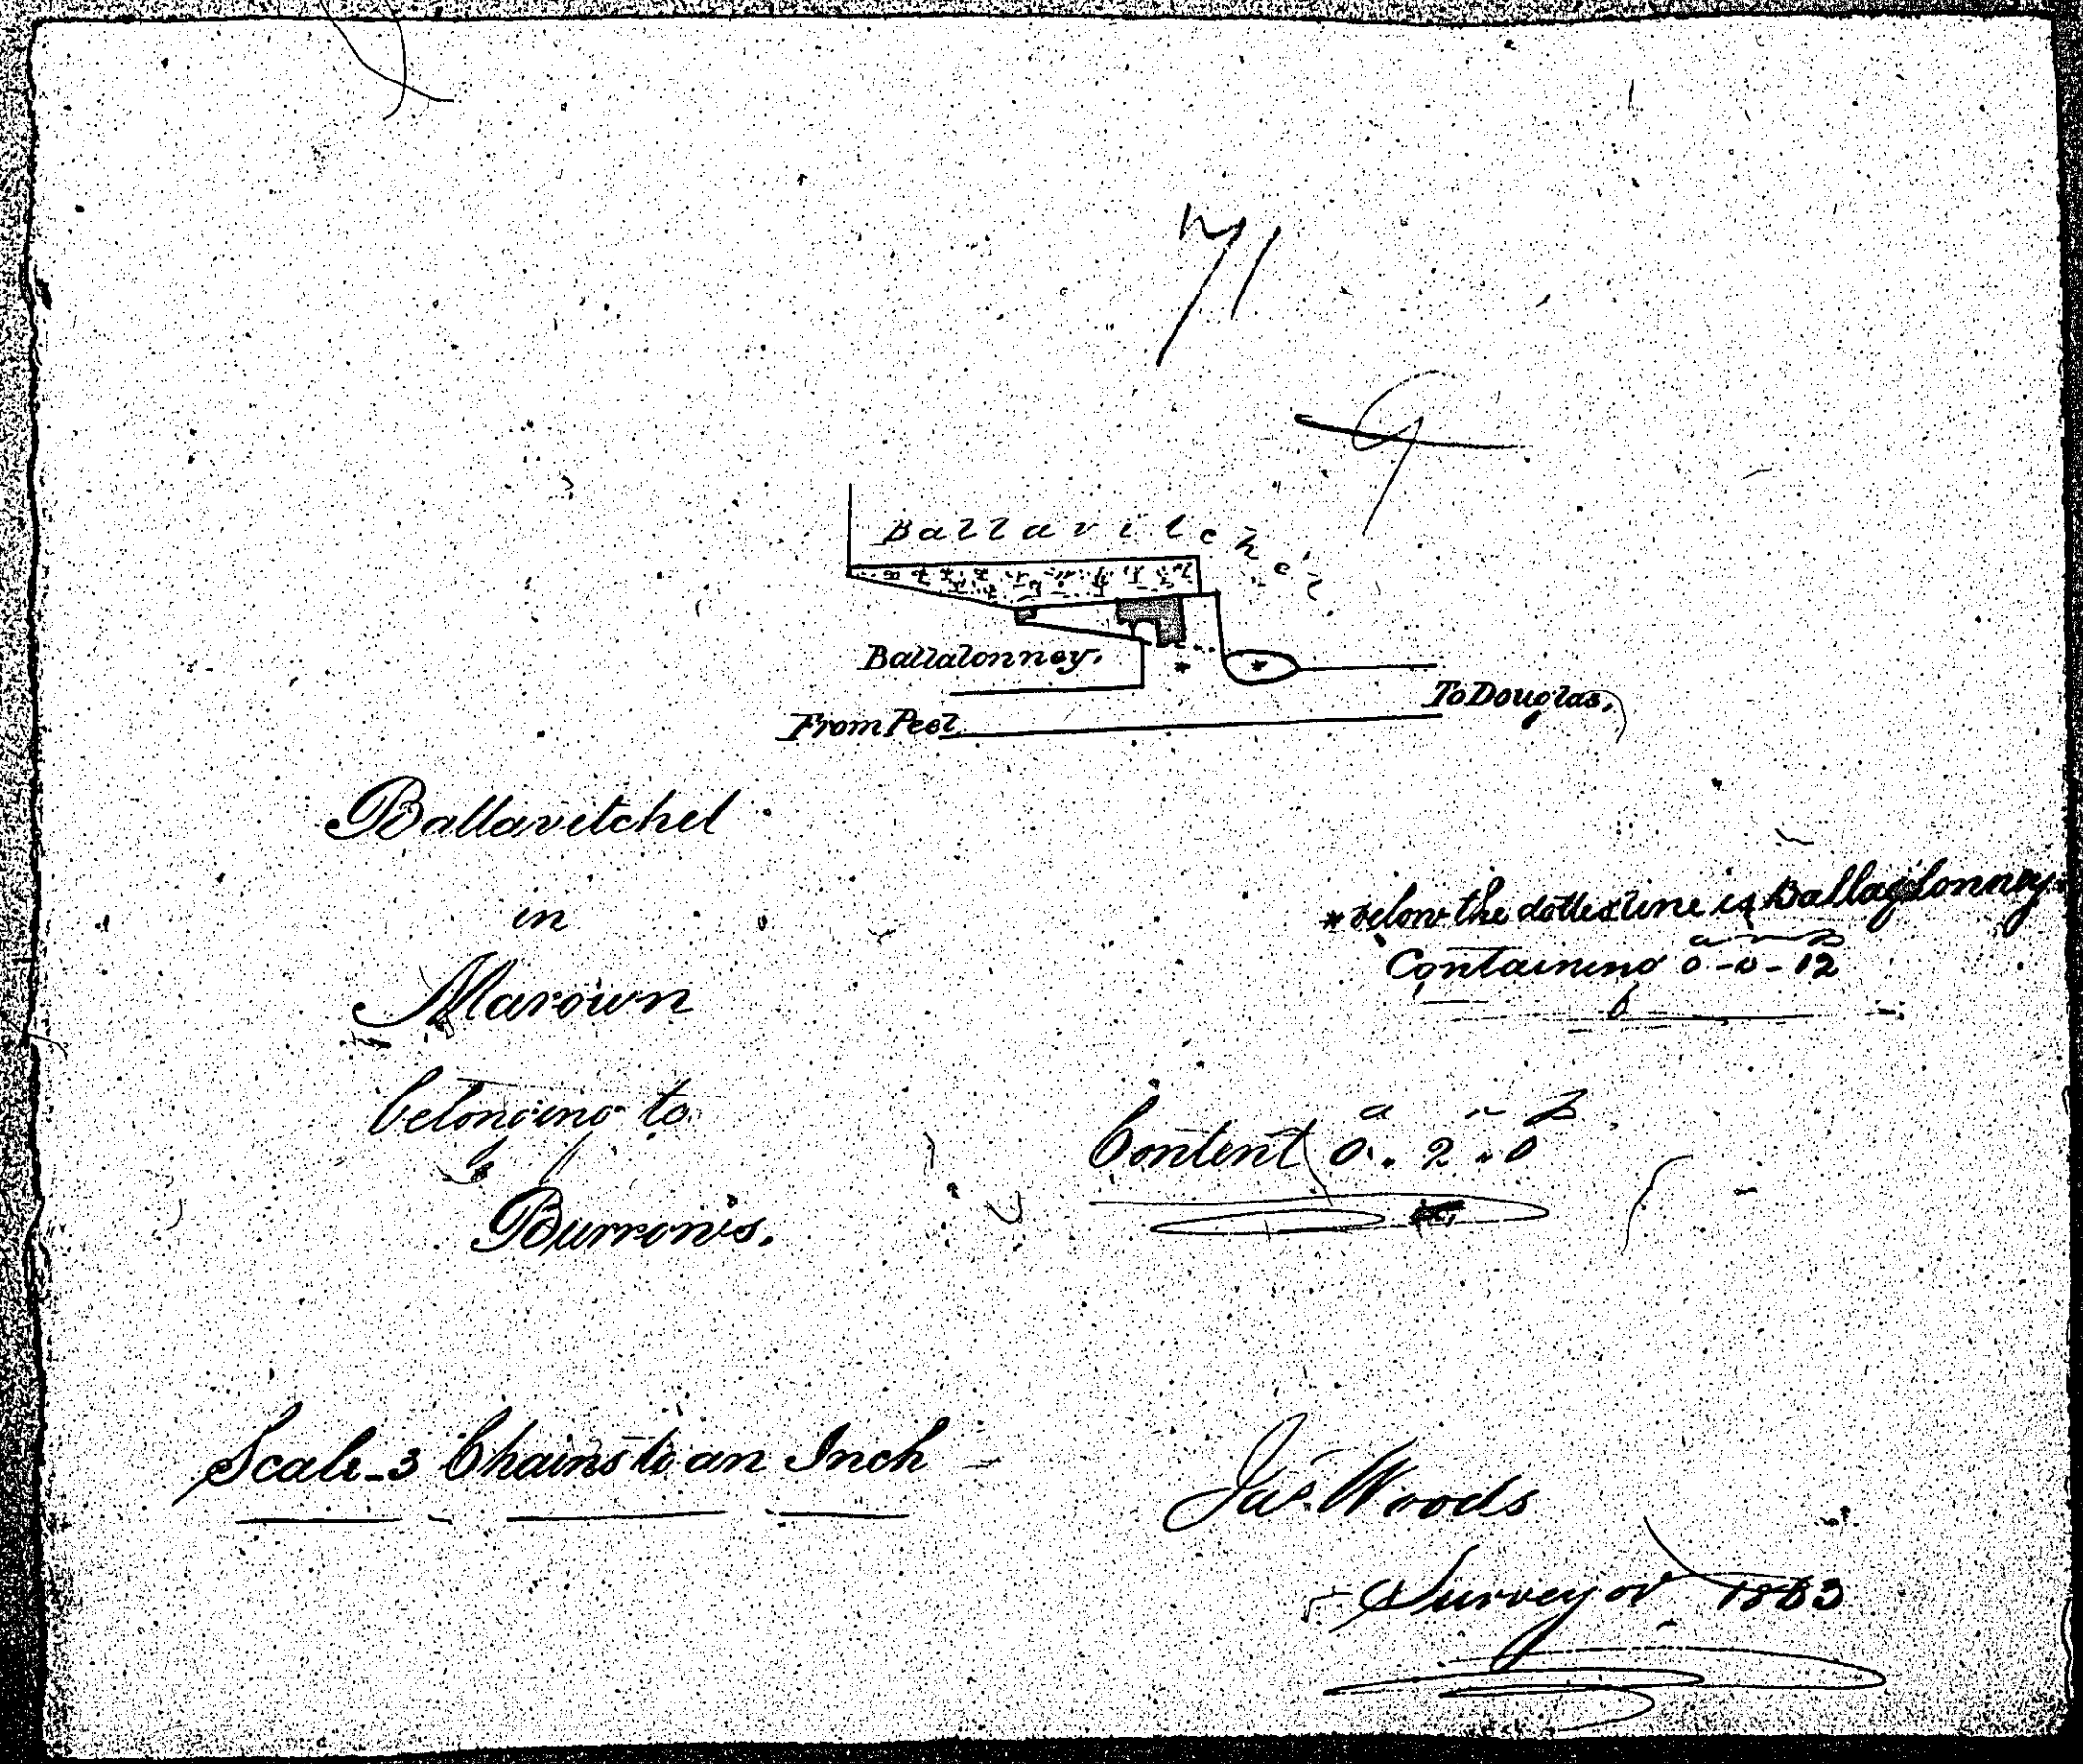 71
Ballavilchel
Ballalonney.
To Douglas.
From Peel
Ballavitchel
in
Marown
belonging to
Burron's.
* below the dotted line is Ballaglonney.
a r p
Containing 0-0-12
a r p
Content 0. 2. 0
Scale-3 Chains to an Inch
Jas. Woods
Surveyor 1863